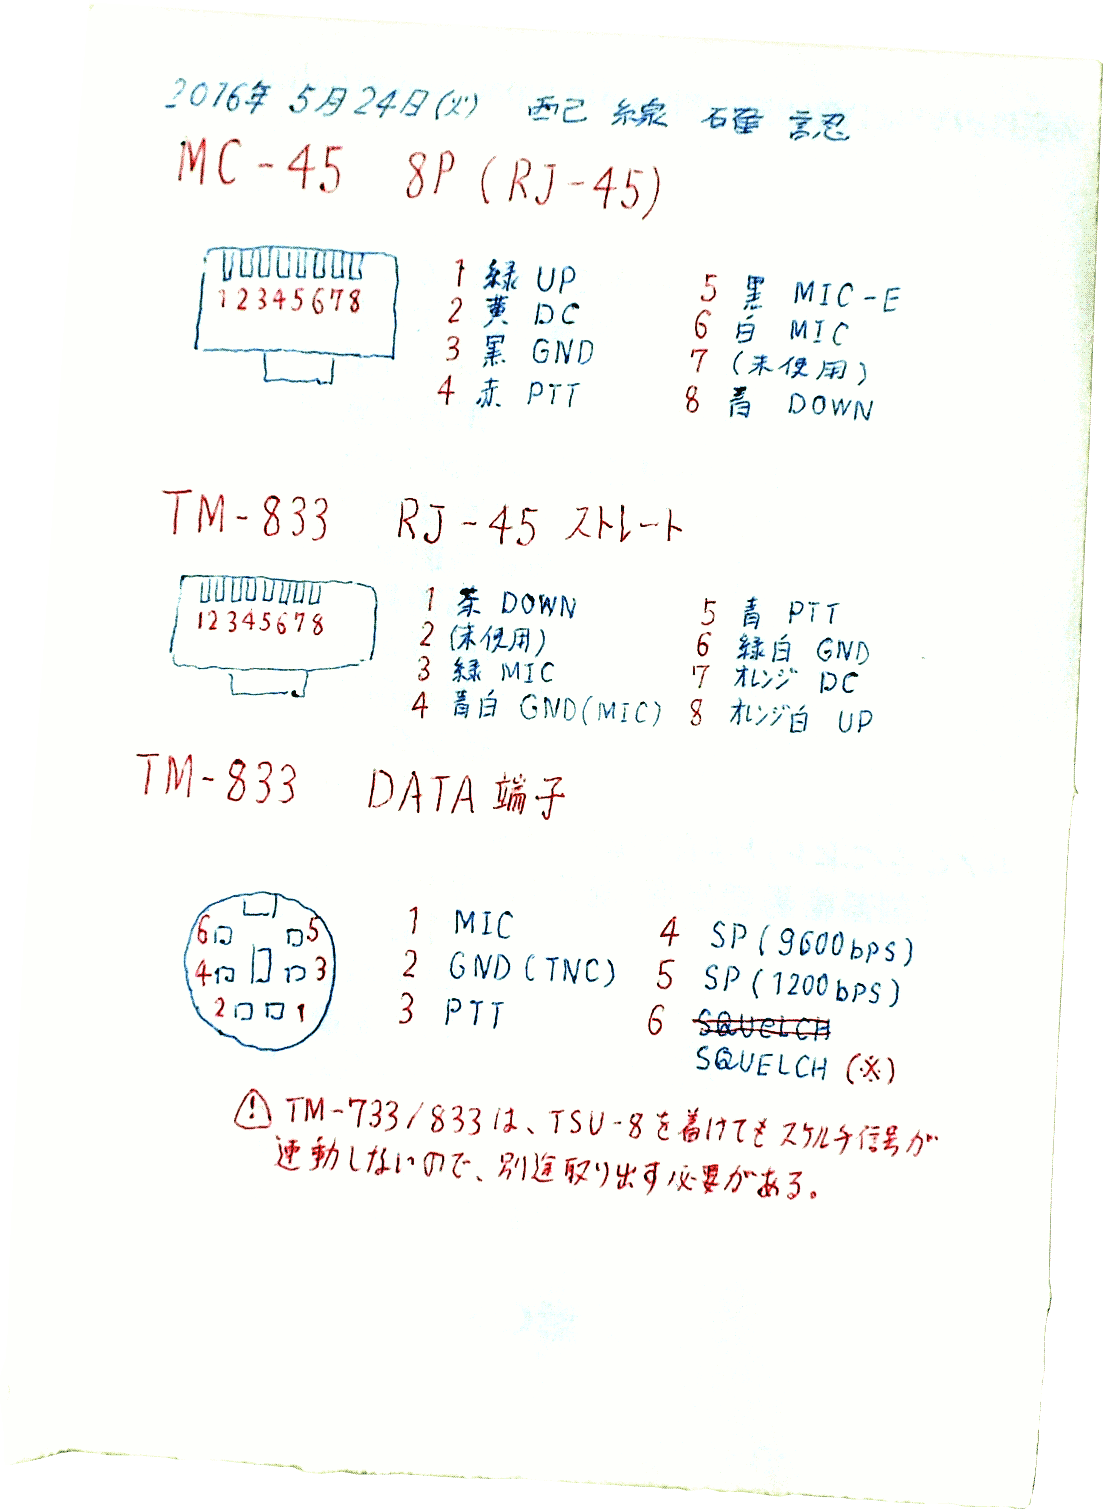 2016年 5月24日(火) 配線確認
MC-45 8P (RJ-45)
12345678
1 緑 UP
2 黄 DC
3 黒 GND
4 赤 PTT
5 黒 MIC-E
6 白 MIC
7 (未使用)
8 青 DOWN
TM-833 RJ-45 ストレート
12345678
1 茶 DOWN
2 (未使用)
3 緑 MIC
4 青白 GND(MIC)
5 青 PTT
6 緑白 GND
7 オレンジ DC
8 オレンジ白 UP
TM-833 DATA端子
6 5
4 3
2 1
1 MIC
2 GND(TNC)
3 PTT
4 SP(9600bps)
5 SP(1200bps)
6 SQUELCH
SQUELCH (※)
⚠ TM-733/833は、TSU-8を着けてもスケルチ信号が
連動しないので、別途取り出す必要がある。